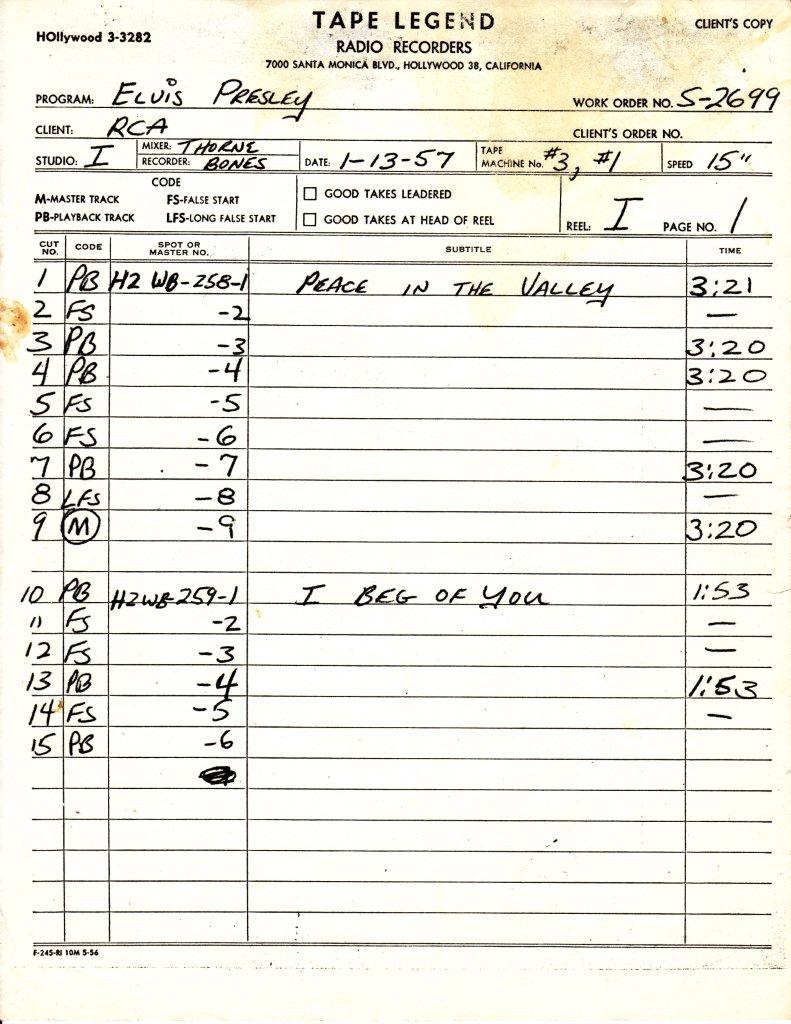 TAPE LEGEND
CLIENT'S COPY
HOllywood 3-3282
RADIO RECORDERS
7000 SANTA MONICA BLVD., HOLLYWOOD 38, CALIFORNIA
PROGRAM: ELVIS PRESLEY WORK ORDER NO. S-2699
CLIENT: RCA CLIENT'S ORDER NO.
STUDIO: I MIXER: THORNE RECORDER: BONES DATE: 1-13-57 TAPE MACHINE No. #3, #1 SPEED 15"
CODE
M-MASTER TRACK FS-FALSE START
PB-PLAYBACK TRACK LFS-LONG FALSE START
GOOD TAKES LEADERED
GOOD TAKES AT HEAD OF REEL
REEL: I PAGE NO. 1
CUT NO. CODE SPOT OR MASTER NO. SUBTITLE TIME
1 PB H2 WB-258-1 PEACE IN THE VALLEY 3:21
2 FS -2 —
3 PB -3 3:20
4 PB -4 3:20
5 FS -5 —
6 FS -6 —
7 PB -7 3:20
8 LFS -8 —
9 M -9 3:20
10 PB H2WB-259-1 I BEG OF YOU 1:53
11 FS -2 —
12 FS -3 —
13 PB -4 1:53
14 FS -5 —
15 PB -6
F-245-RI 10M 5-56